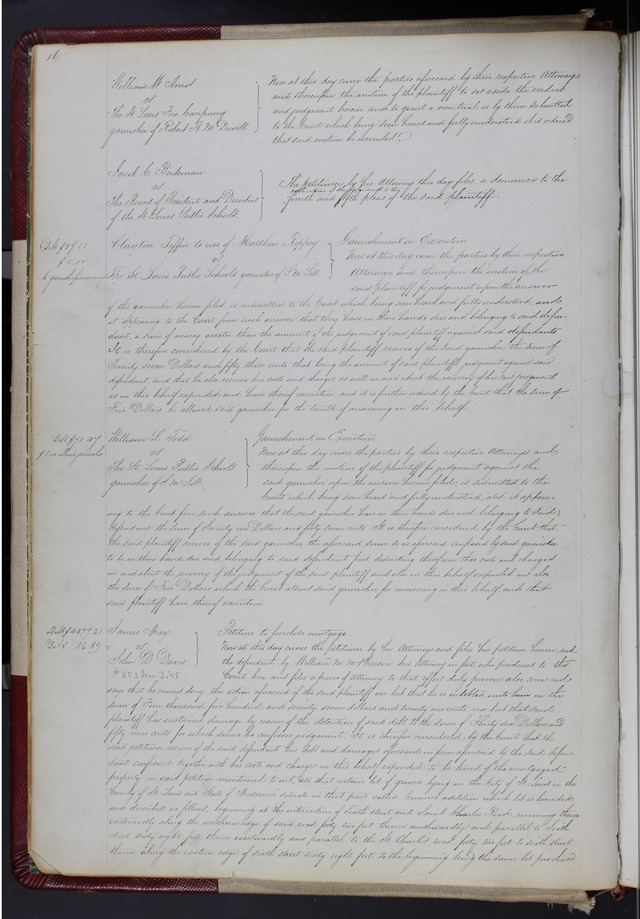 16
William W
vs
The St Louis Fire Company
garnishee of Robert
Now at this day come the parties aforesaid by their respective Attorneys
and thereupon the motion of the plaintiff to set aside the verdict
and judgment herein and to grant a new trial is by them submitted
to the Court which being seen heard and fully understood it is ordered
that said motion be overruled.
Jacob C
vs
The Board of President and Directors
of the St Louis Public Schools
The Petitioner by his Attorney this day files a demurrer to the
fourth and fifth pleas of the said plaintiff
Clayton Tiffin to use of Matthew
vs
The St. Louis Public Schools garnishee of
Garnishment on Execution
Now at this day come the parties by their respective
Attorneys and thereupon the motion of the
said plaintiff for judgment upon the answer
of the garnishee herein filed is submitted to the Court which being seen heard and fully understood, and
it appearing to the Court from such answer that they have in their hands due and belonging to said defen-
dant, a sum of money greater than the amount of the judgment of said plaintiff against said defendants
It is therefore considered by the Court that the said plaintiff recover of the said garnishee the sum of
Twenty seven Dollars and fifty three cents that being the amount of said plaintiffs judgment against said
defendant and that he also recover his costs and charges as well in and about the recovery of his said judgment
as in this behalf expended and have thereof execution, and it is further ordered by the Court that the sum of
Five Dollars be allowed said garnishee for the trouble of answering in this behalf.
William L. Todd
vs
The St. Louis Public Schools
garnishee of
Garnishment on Execution
Now at this day come the parties by their respective Attorneys and
thereupon the motion of the plaintiff for judgment against the
said garnishee upon the answer herein filed, is submitted to the
Court which being seen heard and fully understood, and it appear-
ing to the Court from such answer that the said garnishee have in their hands due and belonging to said
defendant the sum of Seventy one Dollars and forty seven cents It is therefore considered by the Court that
the said plaintiff recover of the said garnishee the aforesaid sum so as aforesaid confessed by said garnishee
to be in their hands due and belonging to said defendant first deducting therefrom their costs and charges
in and about the recovery of the judgment of the said plaintiff and also in this behalf expended and also
the sum of Five Dollars which the Court allows said garnishee for answering in this behalf, and that
said plaintiff have thereof execution
James May
vs
John D Davis
Petition to foreclose mortgage
Now at this day comes the petitioner by his Attorney and files his petition herein, and
the defendant by William M his Attorney in fact who produces to the
Court here and files a power of Attorney to that effect duly proven also comes and
says that he cannot deny the action aforesaid of the said plaintiff nor but that he is indebted unto him in the
sum of Four thousand five hundred and seventy seven dollars and twenty one cents nor but that said
plaintiff has sustained damage by reason of the detention of said debt to the sum of Thirty six Dollars and
nine cents for which sums he confesses judgment. It is therefore considered by the Court that the
said petitioner recover of the said defendant his debt and damages aforesaid in form aforesaid by the said defen-
dant confessed together with his costs and charges in this behalf expended, to be levied of the mortgaged
property in said petition mentioned to wit, all that certain lot of ground lying in the City of St Louis in the
County of St Louis and State of Missouri situate in that part called addition which lot is bounded
and described as follows, beginning at the intersection of sixth street and Saint Charles Road, running thence
eastwardly along the northern edge of said road forty two feet thence northwardly and parallel to sixth
street sixty eight feet thence westwardly and parallel to the St Charles road forty two feet to sixth street
thence along the eastern edge of sixth street sixty eight feet to the beginning being the same lot purchased